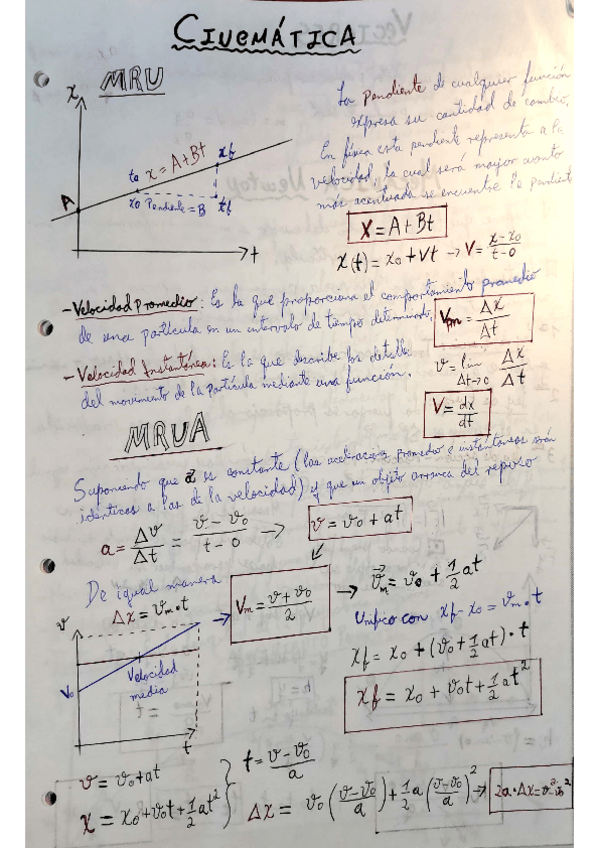 CINEMÁTICA
MRU
x
La Pendiente de cualquier función
expresa su cantidad de cambio.
En física esta pendiente representa a la
velocidad, la cual será mayor cuanto
más acentuada se encuentre la pendiente
to x = A+Bt xf
A
xo Pendiente = B tf
t
X = A + Bt
x(t) = x₀ + Vt → V = (x - x₀)/(t - 0)
- Velocidad Promedio: Es la que proporciona el comportamiento promedio
de una partícula en un intervalo de tiempo determinado.
Vm = Δx/Δt
- Velocidad Instantánea: Es la que describe los detalles
del movimiento de la partícula mediante una función.
v = lim Δt→0 Δx/Δt
V = dx/dt
MRUA
Suponiendo que a es constante (las aceleraciones promedio e instantáneas serán
idénticas a las de la velocidad) y que un objeto arranca del reposo
a = Δv/Δt = (v - v₀)/(t - 0) → v = v₀ + at
De igual manera
Δx = Vm·t → Vm = (v + v₀)/2 → v⃗m = v₀ + 1/2 at
Unifico con xf - x₀ = vm · t
v
xf = x₀ + (v₀ + 1/2 at) · t
V₀
Velocidad
media
xf = x₀ + v₀t + 1/2 at²
t
v = v₀ + at
t = (v - v₀)/a
x = x₀ + v₀t + 1/2 at²
Δx = v₀ ((v - v₀)/a) + 1/2 a ((v - v₀)/a)² → 2a·Δx = v² - v₀²